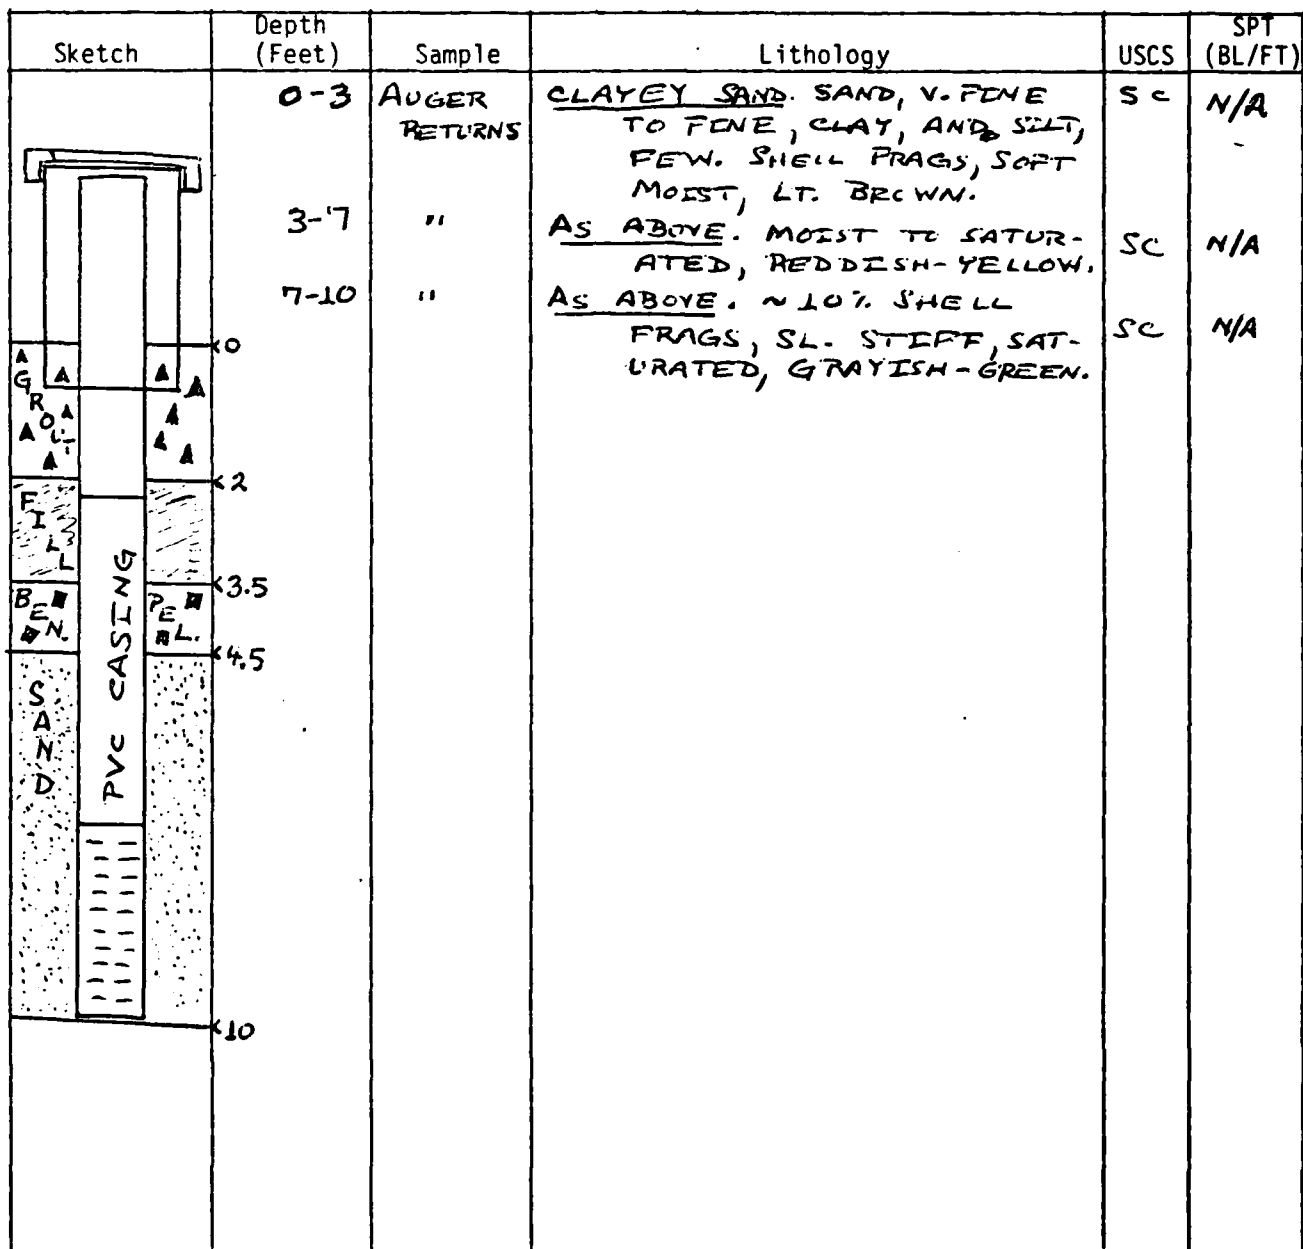 Sketch Depth (Feet) Sample Lithology USCS SPT (BL/FT)
0-3 AUGER RETURNS CLAYEY SAND. SAND, V. FINE SC N/A
TO FINE, CLAY, AND SILT,
FEW. SHELL FRAGS, SOFT
MOIST, LT. BROWN.
3-7 " AS ABOVE. MOIST TO SATUR- SC N/A
ATED, REDDISH-YELLOW.
7-10 " AS ABOVE. ~10% SHELL SC N/A
FRAGS, SL. STIFF, SAT-
URATED, GRAYISH-GREEN.
0
GROUT
2
FILL
3.5
BEN. PEL.
4.5
SAND
PVC CASING
10